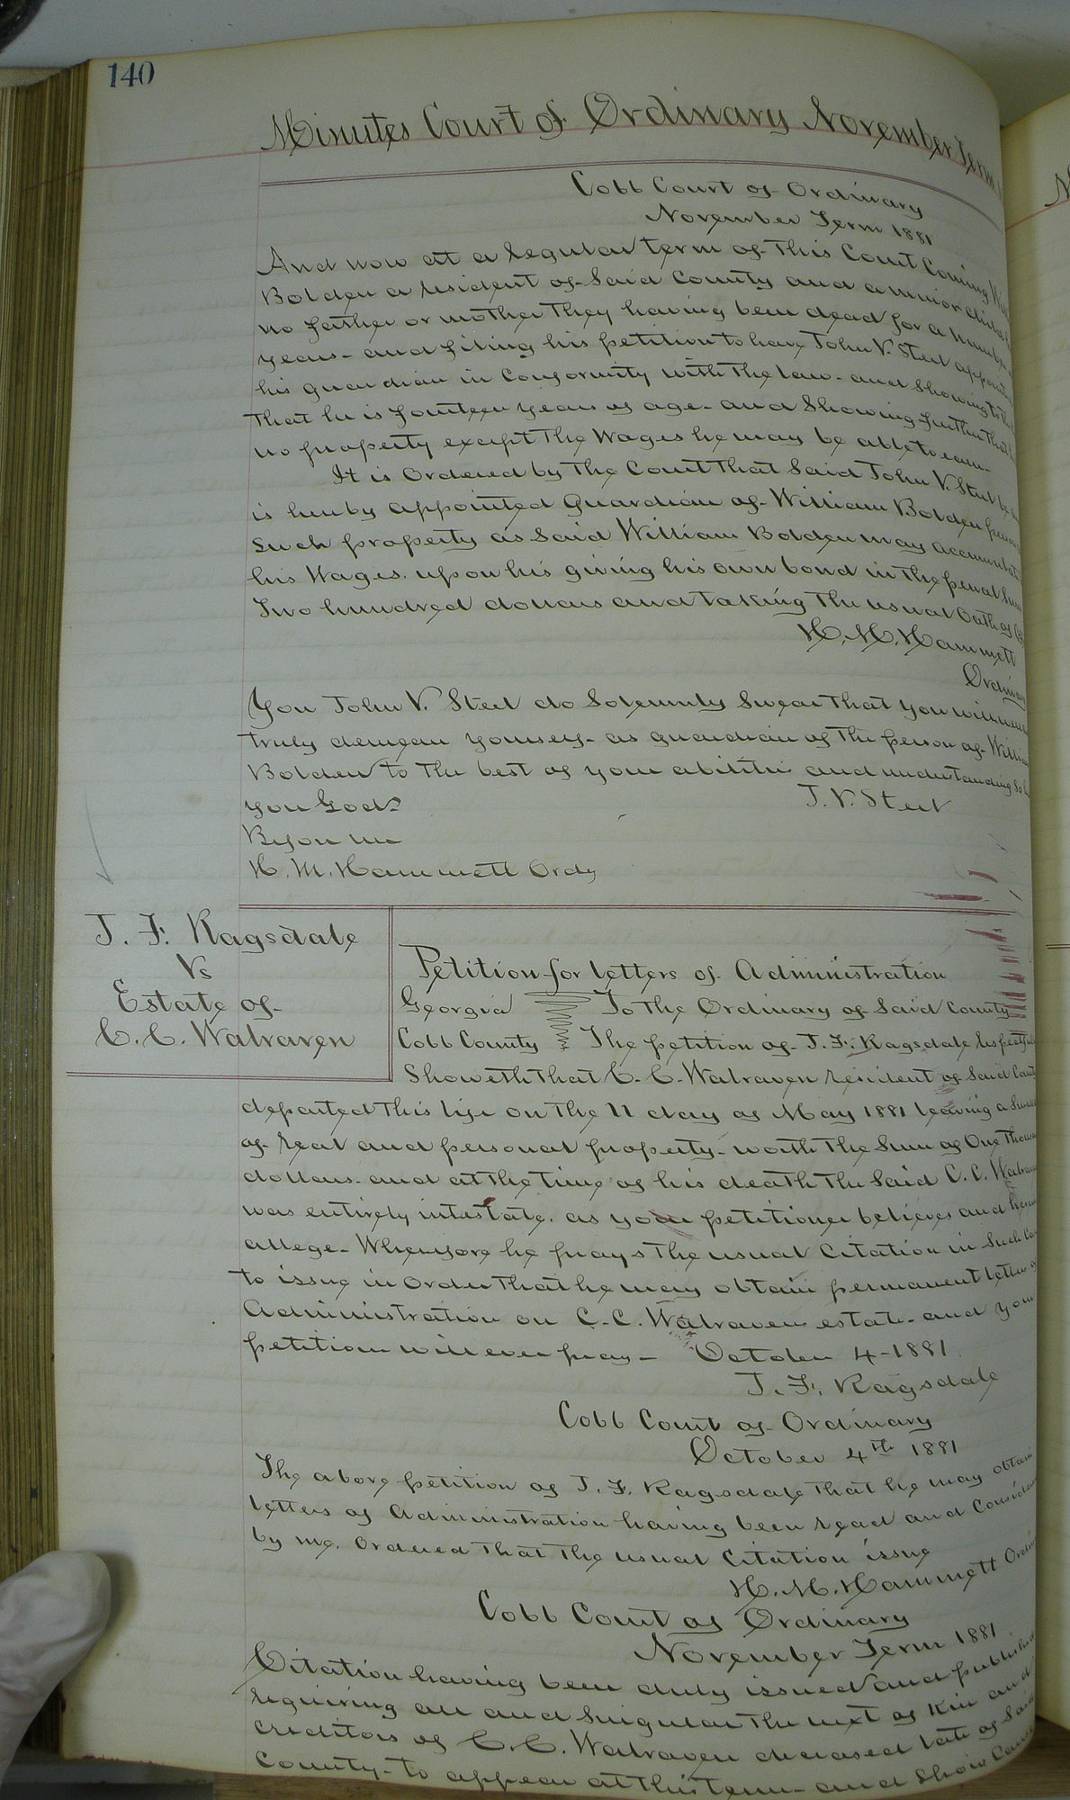 140
Minutes Court of Ordinary November Term
Cobb Court of Ordinary
November Term 1881
And now at a regular term of this Court Coming
Bolden a resident of Said County and a minor
no father or mother they having been dead for a number
years - and filing his petition to have John V. Steel
his guardian in Conformity with the law - and Showing to the
That he is fourteen years of age - and Showing further that
no property except the Wages he may be able to earn -
It is Ordered by the Court that Said John V. Steel be
is hereby appointed Guardian of William Bolden
Such property as Said William Bolden may
his Wages. upon his giving his own bond in the penal
Two hundred dollars and taking the usual Oath of
H. M. Hammett
Ordinary
You John V. Steel do Solemnly Swear that you will
truly demean yourself - as guardian of the person of
Bolden to the best of your abilities and understanding So
you God.
J. V. Steel
Before me
H. M. Hammett Ordy
J. F. Ragsdale
Vs
Estate of
C. C. Walraven
Petition for letters of Administration
Georgia To the Ordinary of Said County
Cobb County The petition of J. F. Ragsdale
Showeth that C. C. Walraven resident of Said
departed this life on the 11 day of May 1881 leaving a
of real and personal property - worth the Sum of One
dollars - and at the time of his death the Said C. C.
was entirely intestate. as your petitioner believes and
allege - Wherefore he prays the usual Citation in Such
to issue in order that he may obtain permanent letters
Administration on C. C. Walraven estate - and your
petitioner will ever pray - October 4 - 1881
J. F. Ragsdale
Cobb Court of Ordinary
October 4th 1881
The above petition of J. F. Ragsdale that he may obtain
letters of Administration having been read and
by me. Ordered that the usual Citation issue
H. M. Hammett
Cobb Court of Ordinary
November Term 1881
Citation having been duly issued and
requiring all and Singular the next of Kin and
Creditors of C. C. Walraven deceased late of Said
County - to appear at this term - and Show